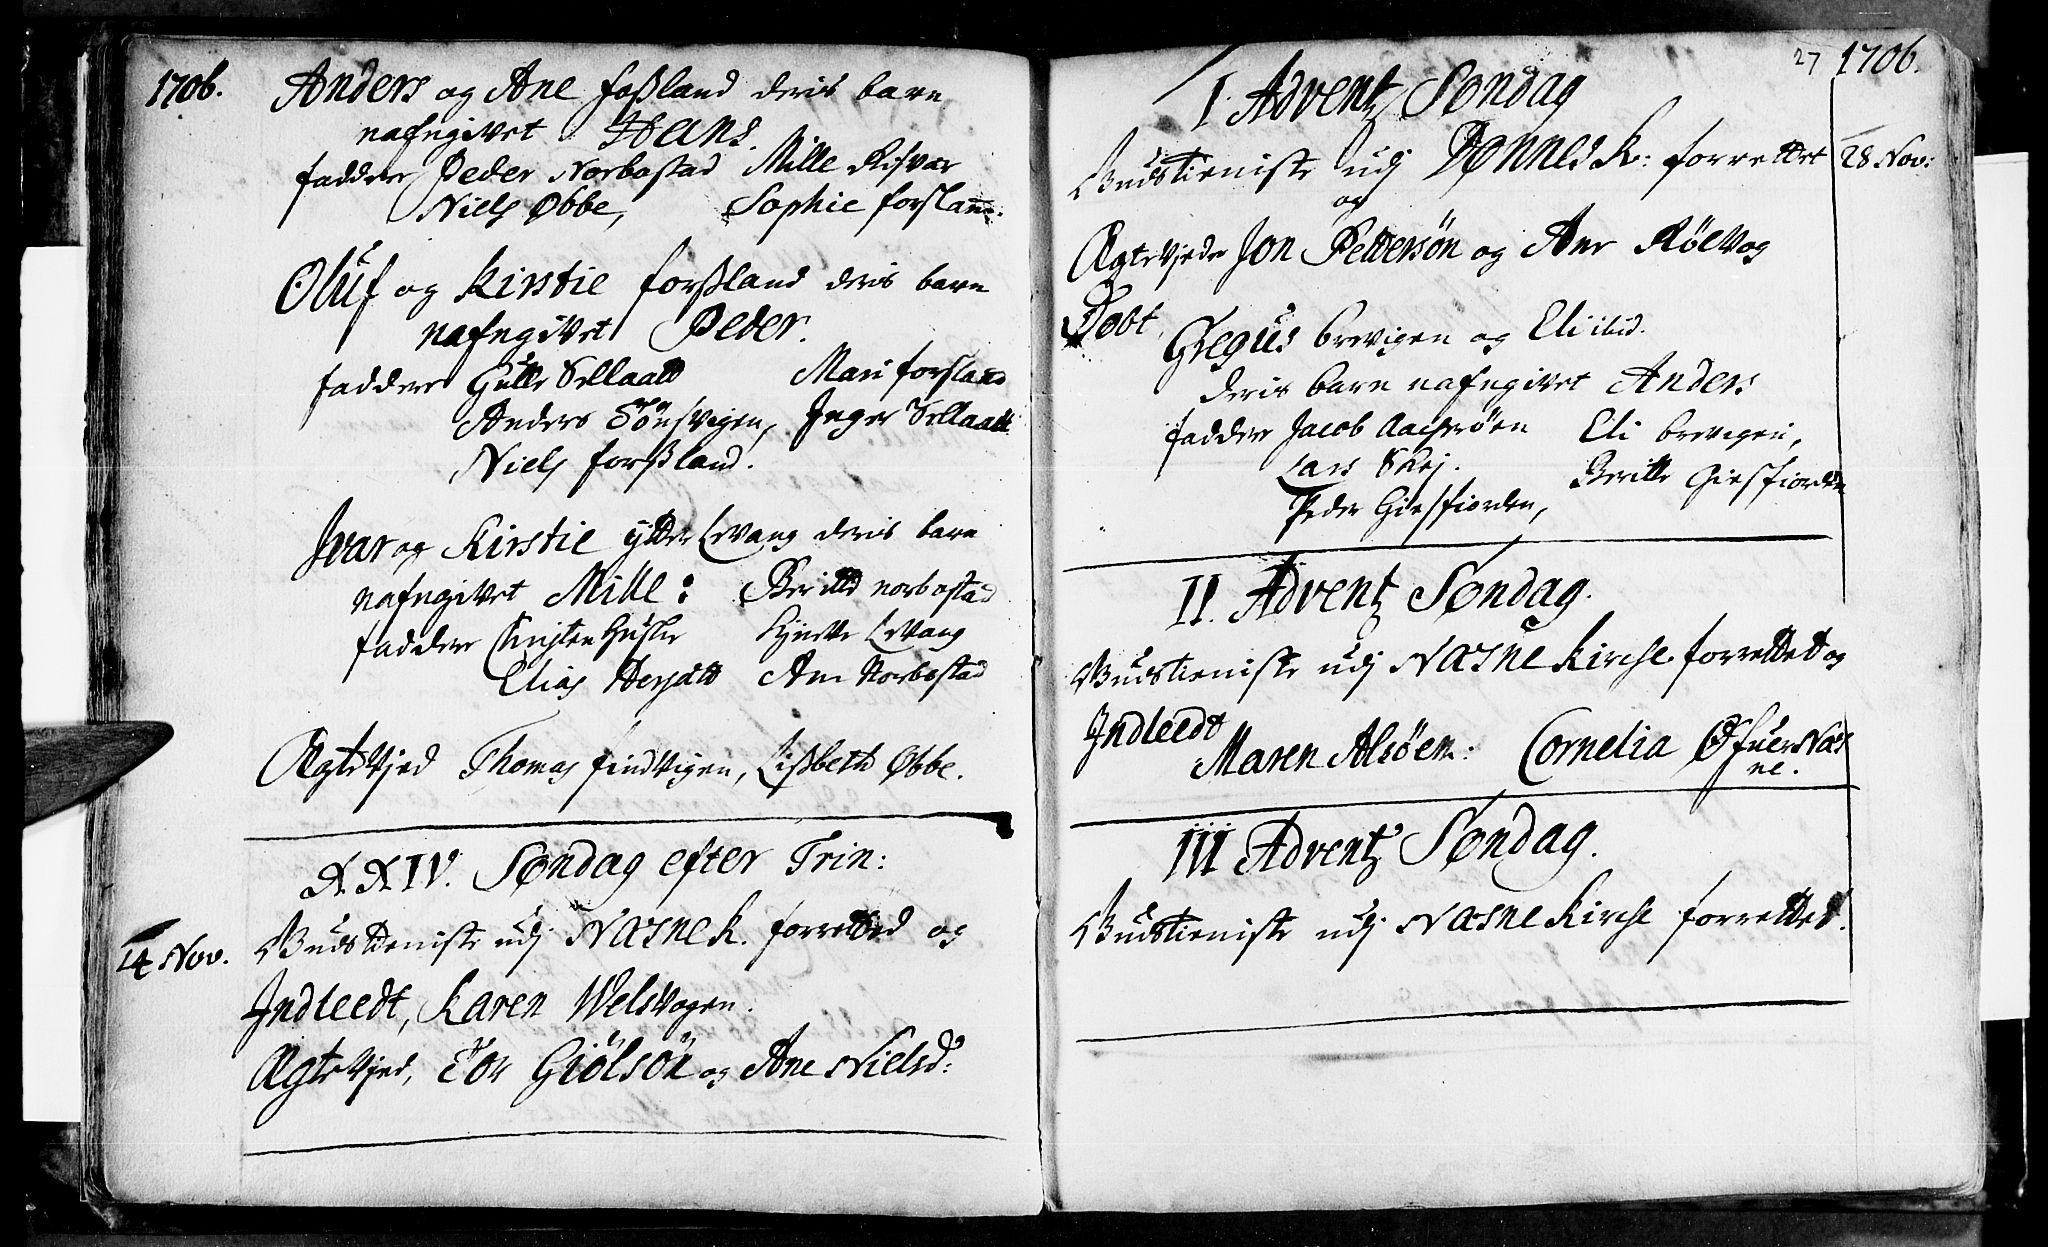 1706.
Anders og Ane Foßland deris barn
nafngivet Hans.
Faddere Peder Norbostad Mille Risvær
Niels Øbbe, Sophie Forsland.
Oluf og Kirstie Forßland deris barn
nafngivet Peder.
Faddere Gulle Sellaatt Mari Forsland
Anders Tønsvigen, Inger Sellaatt
Niels Forßland.
Ivar og Kirstie ytter Levang deris barn
nafngivet Mille: Beritte Norbostad
Faddere Christen Levang
Elias Ane Norbostad
Ægteviede Thomas Findvigen, Lißbeth Øbbe.
XXIV. Søndag efter Trin:
14 Nov. Gudstieniste udj Nasne K. forretted og
Indleedt, Karen Welsvogen.
Ægtevied, Tor Giølsøn og Ane Nielsd:
27 1706.
I. Advents Søndag
Gudstieniste udj Dønnes K: forrettet 28 Nov:
og
Ægteviede Jon Pettersøn og Ane Rølvog
Døbt, Gregus Brevigen og Eli ibid.
deris barn nafngivet Anders
Faddere Jacob Eli Brevigen,
Lars Skej. Beritte Giesfiorden
Peder Giesfiorden,
II. Advents Søndag.
Gudstieniste udj Nasne Kirche forrettet og
Indleedt
Maren Alsøen: Cornelia Øfuer Nas
ne.
III Advents Søndag.
Gudstieniste udj Nasne Kirche forrettet.